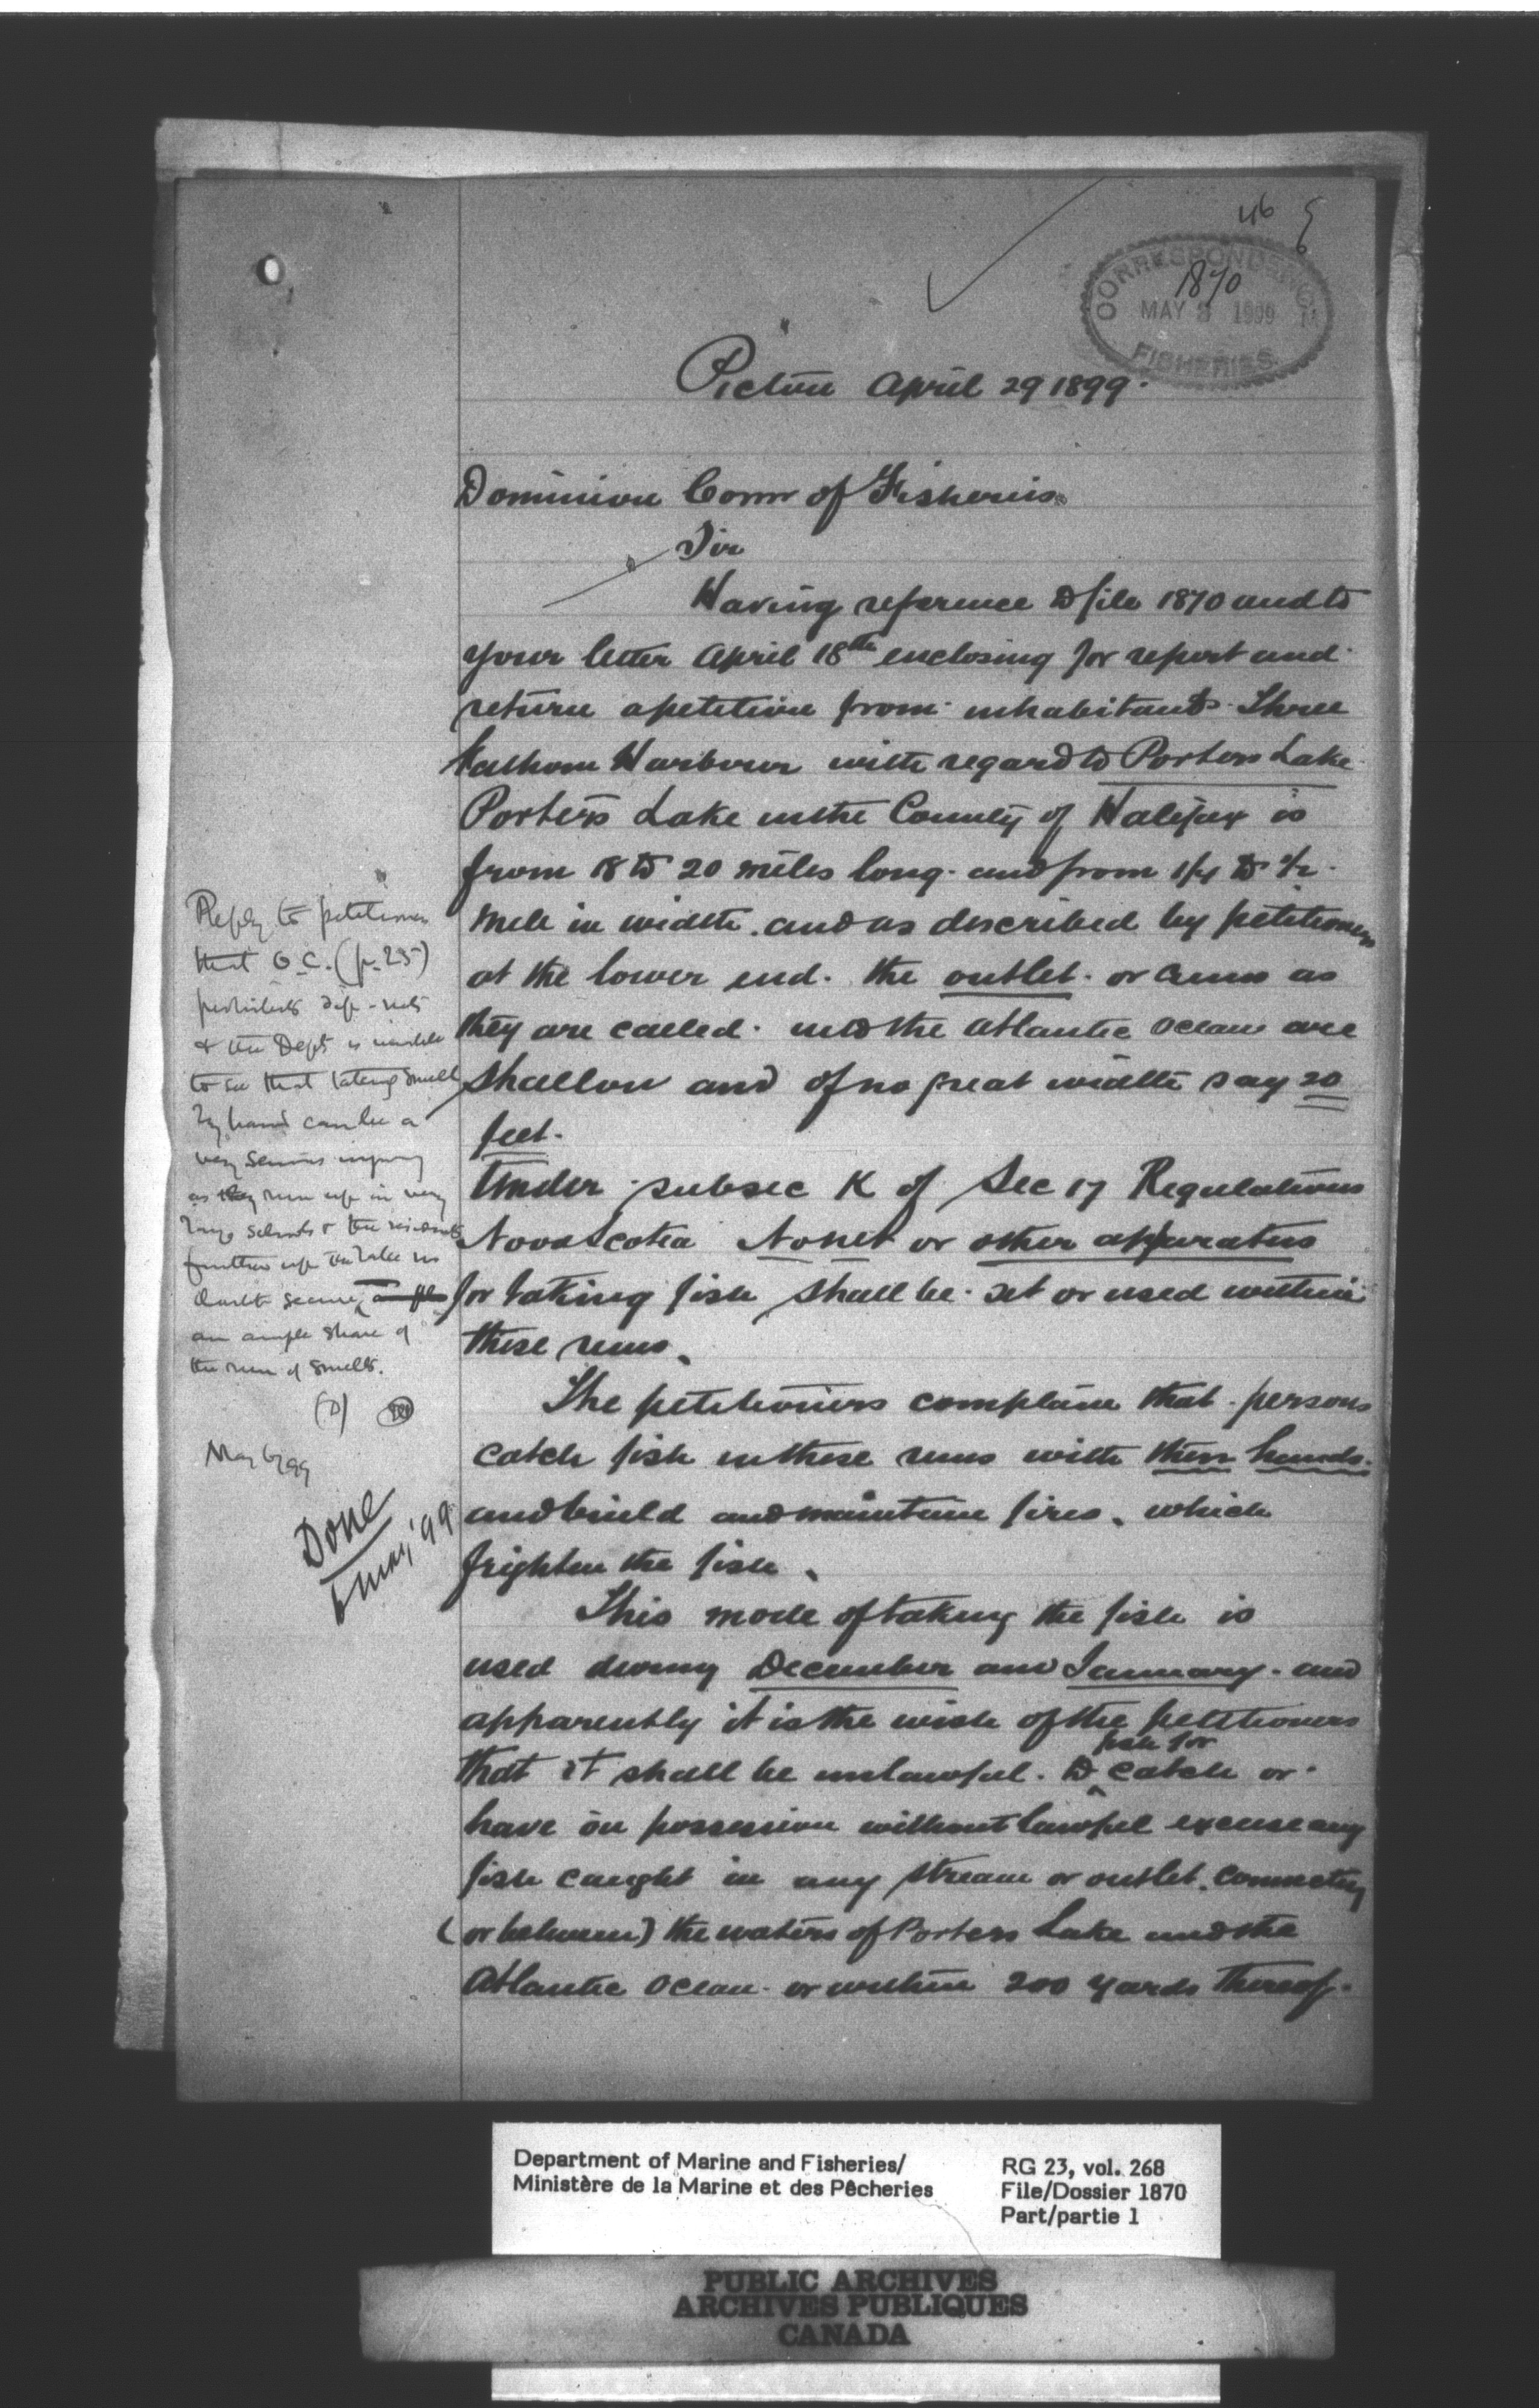 46
CORRESPONDENCE
1870
MAY 3 1899
FISHERIES
Pictou April 29 1899.
Dominion Comr of Fisheries.
Sir
Having reference to file 1870 and to
your letter April 18th enclosing for report and
return a petition from inhabitants Three
Fathom Harbour with regard to Porters Lake
Porters Lake in the County of Halifax is
from 18 to 20 miles long. and from 1/4 to 1/2
mile in width. and as described by petitioners
at the lower end. the outlet. or runs as
they are called. into the Atlantic Ocean are
shallow and of no great width say 20
feet.
Under subsec K of Sec 17 Regulations
Nova Scotia No net or other apparatus
for taking fish shall be set or used within
these runs.
The petitioners complain that persons
catch fish in these runs with their hands.
and build and maintain fires, which
frighten the fish.
This mode of taking the fish is
used during December and January. and
apparently it is the wish of the petitioners
that it shall be unlawful. to fish for catch or
have in possession without lawful excuse any
fish caught in any stream or outlet. connecting
(or between) the waters of Porters Lake and the
Atlantic Ocean. or within 200 yards thereof.
Reply to petitioners
that O.C. (p. 25)
prohibits dip-nets
& the Dept is unable
to see that taking smelt
by hand can be a
very serious injury
as they run up in very
large schools & the residents
further up the lake no
doubt secure
an ample share of
the run of smelts.
May 6/99
Done
6 May, '99
Department of Marine and Fisheries/
Ministère de la Marine et des Pêcheries
RG 23, vol. 268
File/Dossier 1870
Part/partie 1
PUBLIC ARCHIVES
ARCHIVES PUBLIQUES
CANADA